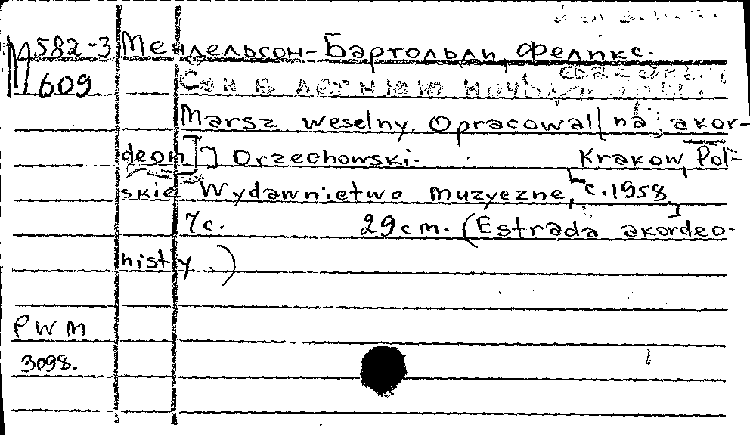 М582-3 Мендельсон-Бартольди, Феликс.
609 Сон в летнюю ночь
Marsz weselny. Opracował [na akor-
deon] J Orzechowski. Krakow, Pol-
skie Wydawnietwo muzyezne, [c.1958]
7c. 29cm. (Estrada akordeo-
nisty.)
PWM
3098.